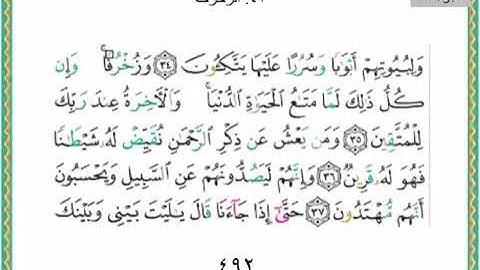 وَلِبُيُوتِهِمْ أَبْوَٰبًا وَسُرُرًا عَلَيْهَا يَتَّكِـُٔونَ ٣٤ وَزُخْرُفًا ۚ وَإِن
كُلُّ ذَٰلِكَ لَمَّا مَتَـٰعُ ٱلْحَيَوٰةِ ٱلدُّنْيَا ۚ وَٱلْـَٔاخِرَةُ عِندَ رَبِّكَ
لِلْمُتَّقِينَ ٣٥ وَمَن يَعْشُ عَن ذِكْرِ ٱلرَّحْمَـٰنِ نُقَيِّضْ لَهُۥ شَيْطَـٰنًا
فَهُوَ لَهُۥ قَرِينٌ ٣٦ وَإِنَّهُمْ لَيَصُدُّونَهُمْ عَنِ ٱلسَّبِيلِ وَيَحْسَبُونَ
أَنَّهُم مُّهْتَدُونَ ٣٧ حَتَّىٰٓ إِذَا جَآءَنَا قَالَ يَـٰلَيْتَ بَيْنِى وَبَيْنَكَ
٤٩٢